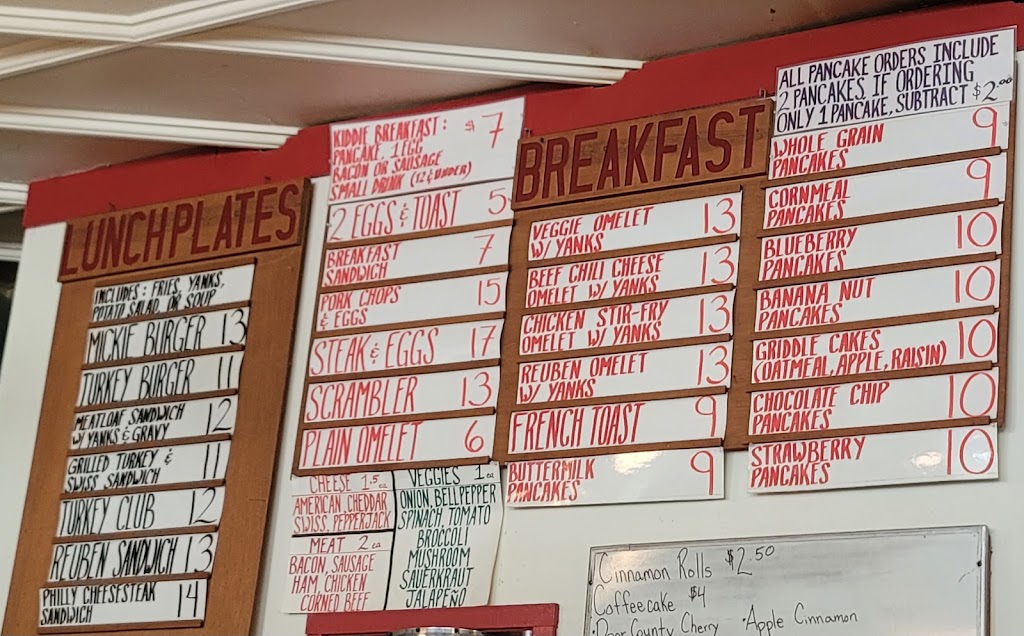 LUNCH PLATES
INCLUDES: FRIES, YANKS,
POTATO SALAD, OR SOUP
MICKIE BURGER 13
TURKEY BURGER 11
MEATLOAF SANDWICH
W/ YANKS & GRAVY 12
GRILLED TURKEY &
SWISS SANDWICH 11
TURKEY CLUB 12
REUBEN SANDWICH 13
PHILLY CHEESESTEAK
SANDWICH 14
KIDDIE BREAKFAST: $7
PANCAKE 1 EGG
BACON OR SAUSAGE
SMALL DRINK (12 & UNDER)
2 EGGS & TOAST 5
BREAKFAST
SANDWICH 7
PORK CHOPS
& EGGS 15
STEAK & EGGS 17
SCRAMBLER 13
PLAIN OMELET 6
CHEESE 1.5 ea
AMERICAN, CHEDDAR
SWISS, PEPPERJACK
MEAT 2 ea
BACON, SAUSAGE
HAM, CHICKEN
CORNED BEEF
VEGGIES 1 ea
ONION, BELLPEPPER
SPINACH, TOMATO
BROCCOLI
MUSHROOM
SAUERKRAUT
JALAPEÑO
BREAKFAST
VEGGIE OMELET
W/ YANKS 13
BEEF CHILI CHEESE
OMELET W/ YANKS 13
CHICKEN STIR-FRY
OMELET W/ YANKS 13
REUBEN OMELET
W/ YANKS 13
FRENCH TOAST 9
BUTTERMILK
PANCAKES 9
ALL PANCAKE ORDERS INCLUDE
2 PANCAKES. IF ORDERING
ONLY 1 PANCAKE, SUBTRACT $2.00
WHOLE GRAIN
PANCAKES 9
CORNMEAL
PANCAKES 9
BLUEBERRY
PANCAKES 10
BANANA NUT
PANCAKES 10
GRIDDLE CAKES
(OATMEAL, APPLE, RAISIN) 10
CHOCOLATE CHIP
PANCAKES 10
STRAWBERRY
PANCAKES 10
Cinnamon Rolls $2.50
Coffeecake $4
• Door County Cherry • Apple Cinnamon